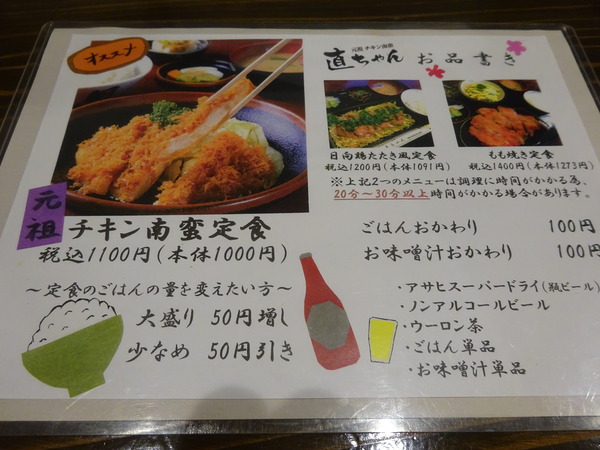 オススメ
元祖
チキン南蛮定食
税込1100円(本体1000円)
～定食のごはんの量を変えたい方～
大盛り 50円増し
少なめ 50円引き
元祖 チキン南蛮
直ちゃん お品書き
日向鶏たたき風定食
税込1200円(本体1091円)
もも焼き定食
税込1400円(本体1273円)
※上記2つのメニューは調理に時間がかかる為、
20分～30分以上時間がかかる場合があります。
ごはんおかわり 100円
お味噌汁おかわり 100円
・アサヒスーパードライ(瓶ビール)
・ノンアルコールビール
・ウーロン茶
・ごはん単品
・お味噌汁単品